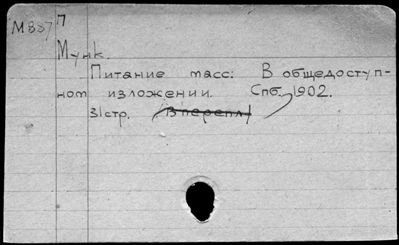 М 887
П
Мунк.
Питание масс: В общедоступ-
ном изложении. Спб. 1902.
31стр. В перепл